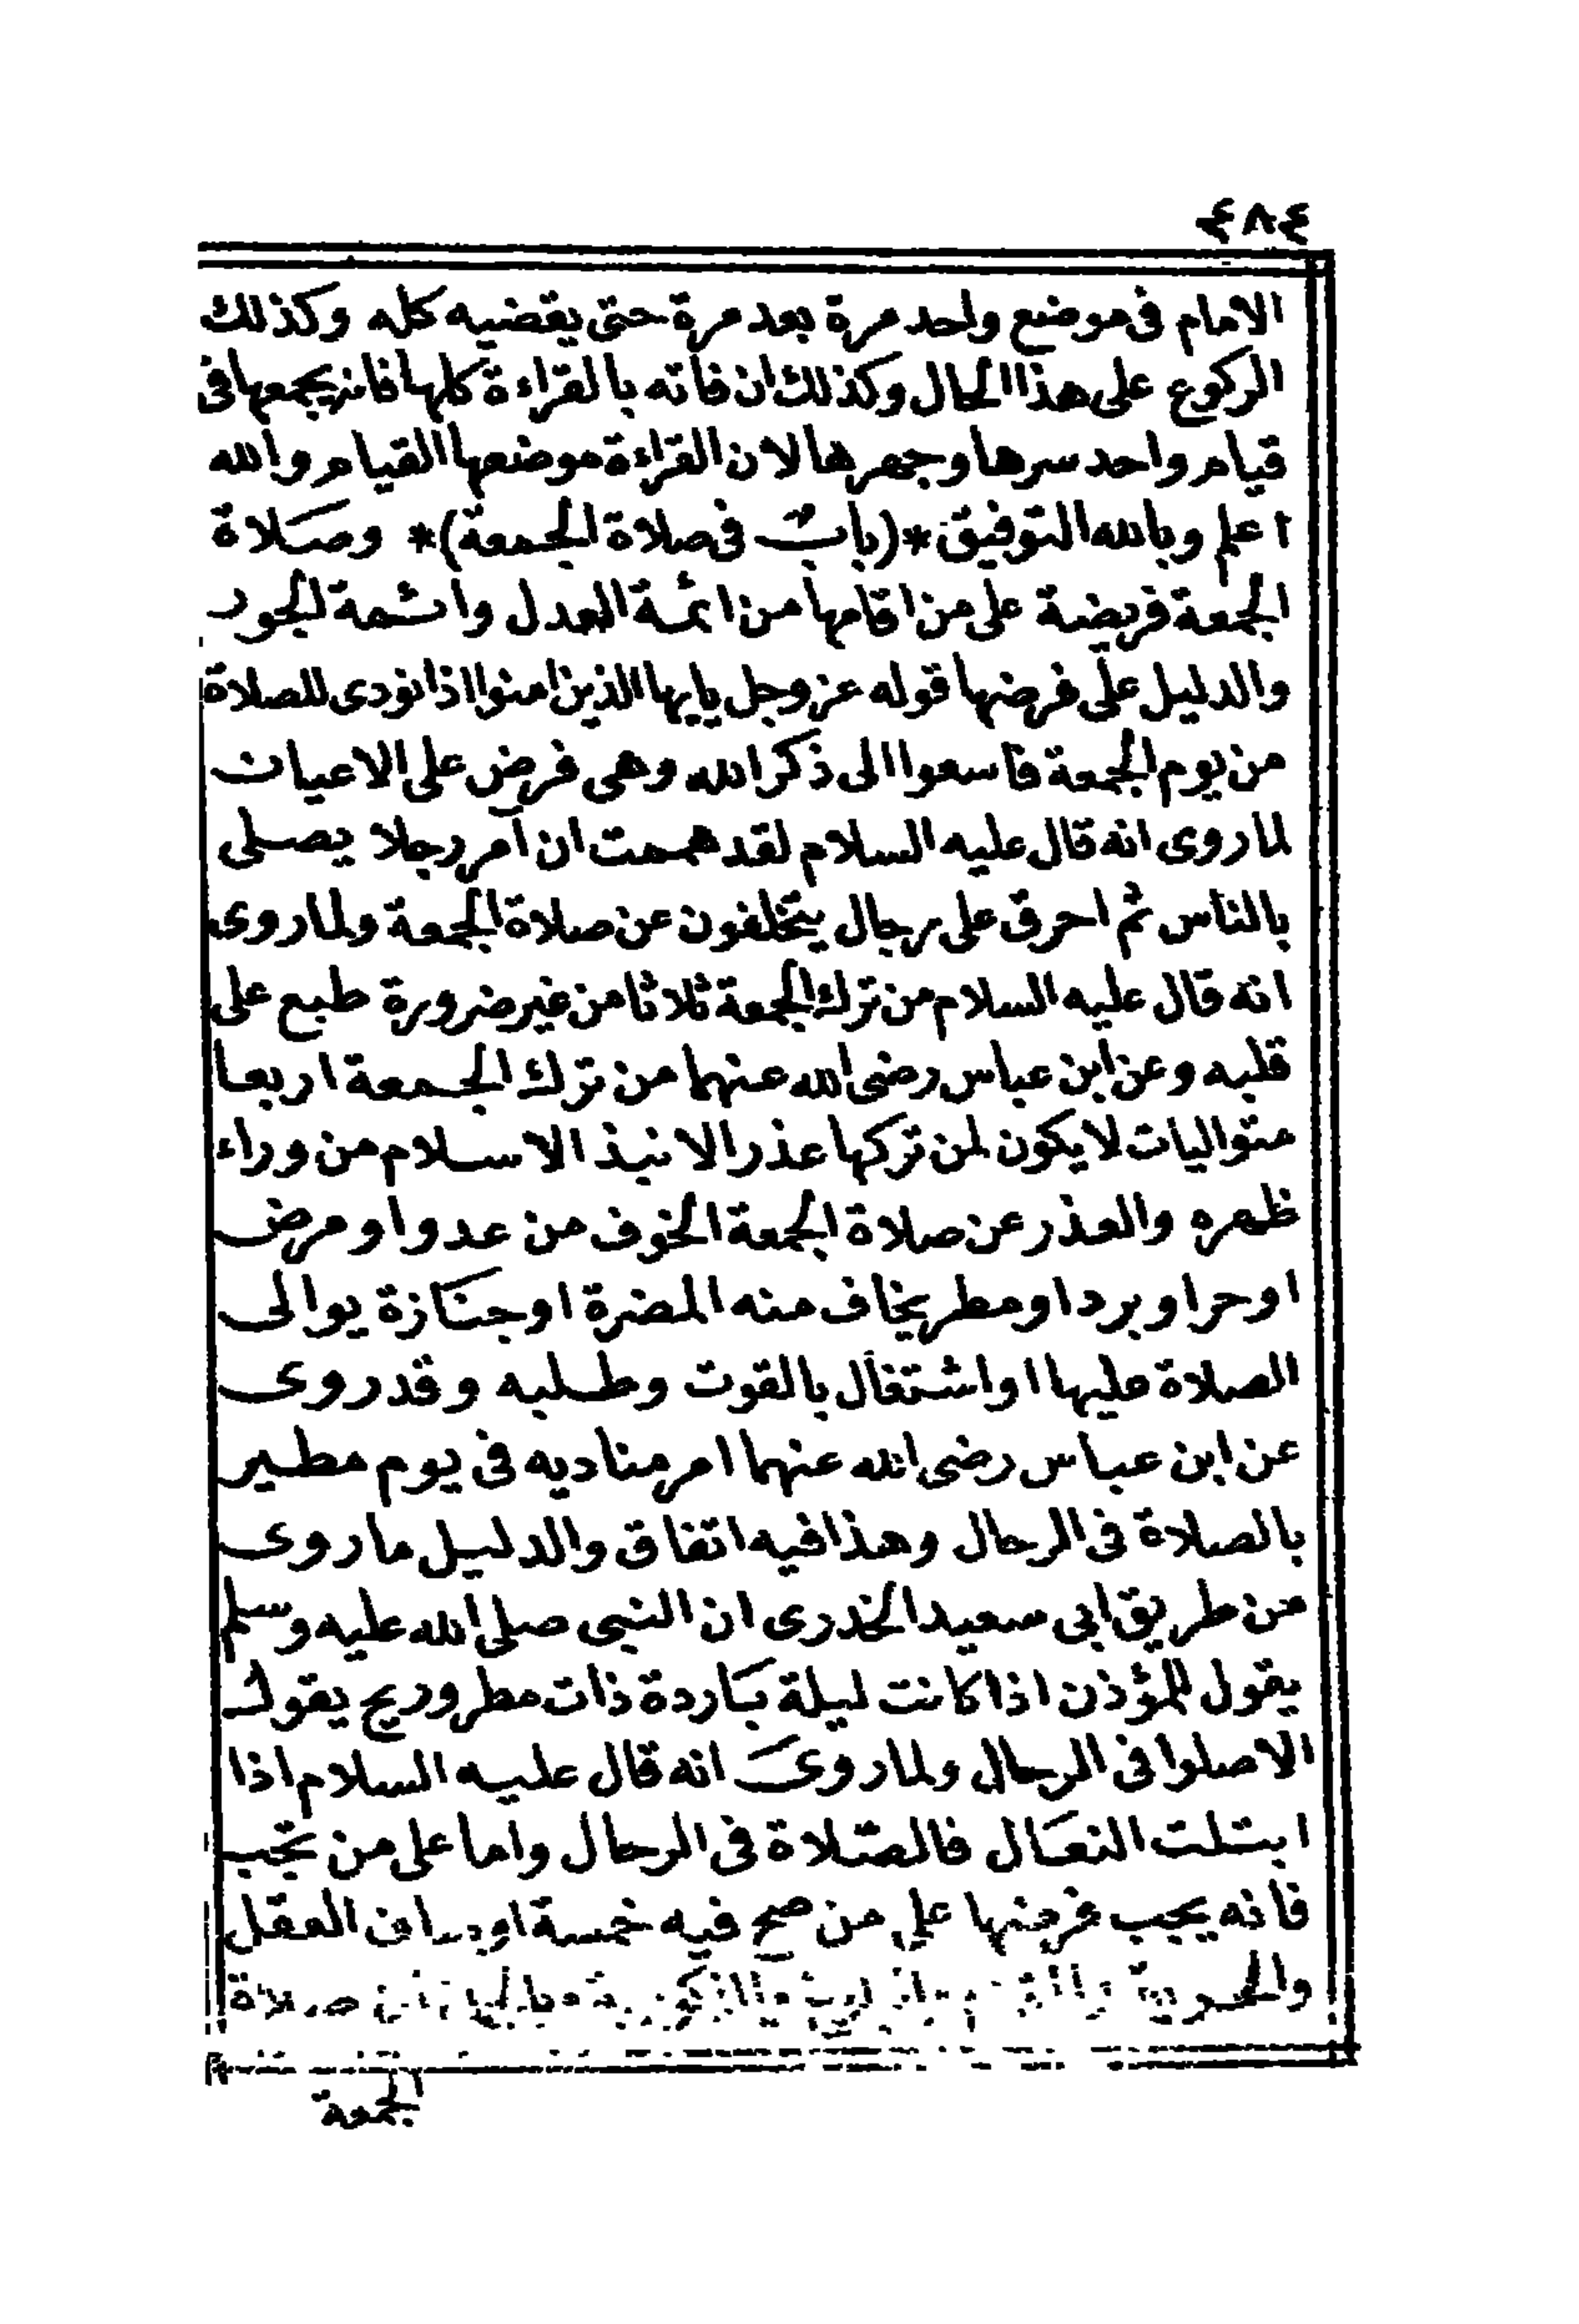 ٤٨٤
الامام فى موضع واحد مرة بعد مرة حتى يقضيه كله وكذلك
الركوع على هذا الحال وكذلك ان فاته بالقراءة كلها فانه يجمعها فى
قيام واحد سرها وجهرها لان القراءة موضعها القيام والله
اعلم وبالله التوفيق *(باب فى صلاة الجمعة)* وصلاة
الجمعة فريضة على من اقامها من ائمة العدل وائمة الجور
والدليل على فرضها قوله عز وجل يايها الذين امنوا اذا نودى للصلاة
من يوم الجمعة فاسعوا الى ذكر الله وهى فرض على الاعيان
لما روى انه قال عليه السلام لقد هممت ان آمر رجلا يصلى
بالناس ثم احرق على رجال يتخلفون عن صلاة الجمعة ولما روى
انه قال عليه السلام من ترك الجمعة ثلاثا من غير ضرورة طبع على
قلبه وعن ابن عباس رضى الله عنهما من ترك الجمعة اربعا
متواليات لا يكون لمن تركها عذر الا نبذ الاسلام من وراء
ظهره والعذر عن صلاة الجمعة الخوف من عدو او مرض
او حر او برد او مطر يخاف منه المضرة او جنازة يوالى
الصلاة عليها او اشتغال بالقوت وطلبه وقد روى
عن ابن عباس رضى الله عنهما امر مناديه فى يوم مطير
بالصلاة فى الرحال وهذا فيه اتفاق والدليل ما روى
من طريق ابى سعيد الخدرى ان النبى صلى الله عليه وسلم
يقول للمؤذن اذا كانت ليلة باردة ذات مطر وريح يقول
الا صلوا فى الرحال ولما روى انه قال عليه السلام اذا
ابتلت النعال فالصلاة فى الرحال واما على من تجب
فانه يجب فرضها على من صح فيه خمسة اوصاف العقل
والحرية صلاة
الجمعة